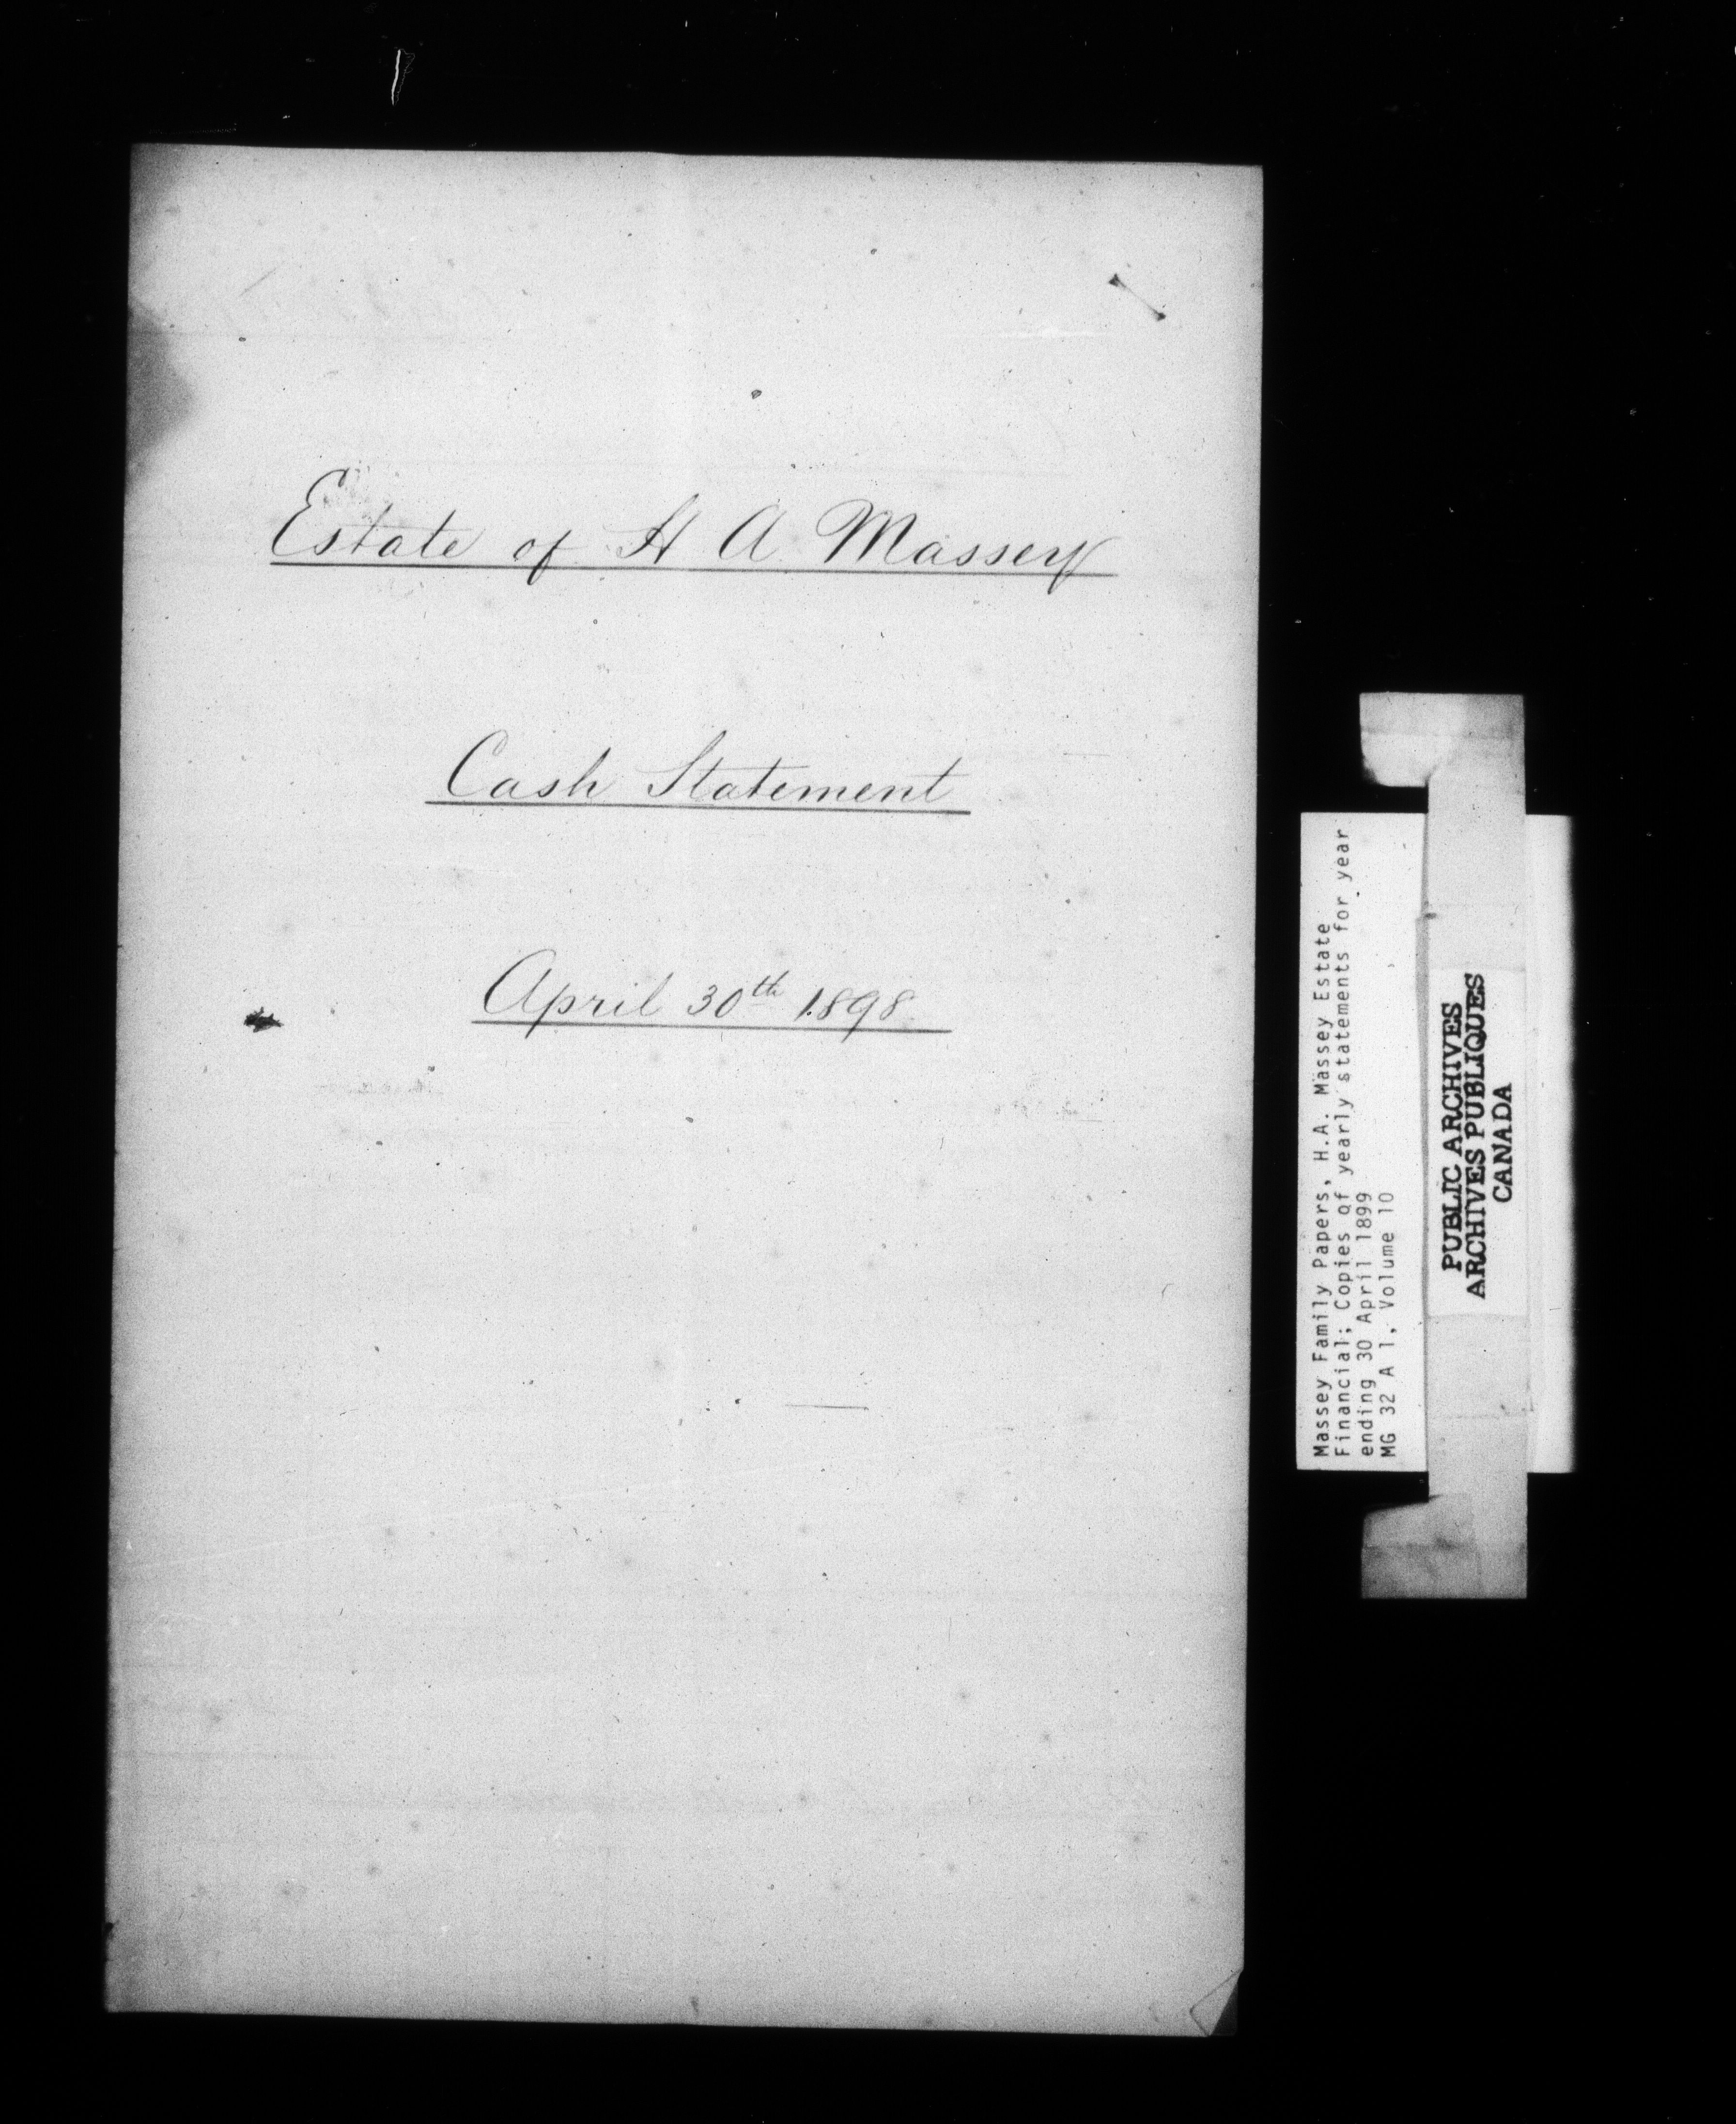 Estate of H A Massey
Cash Statement
April 30th 1898
Massey Family Papers, H.A. Massey Estate
Financial; Copies of yearly statements for year
ending 30 April 1899
MG 32 A 1, Volume 10
PUBLIC ARCHIVES
ARCHIVES PUBLIQUES
CANADA